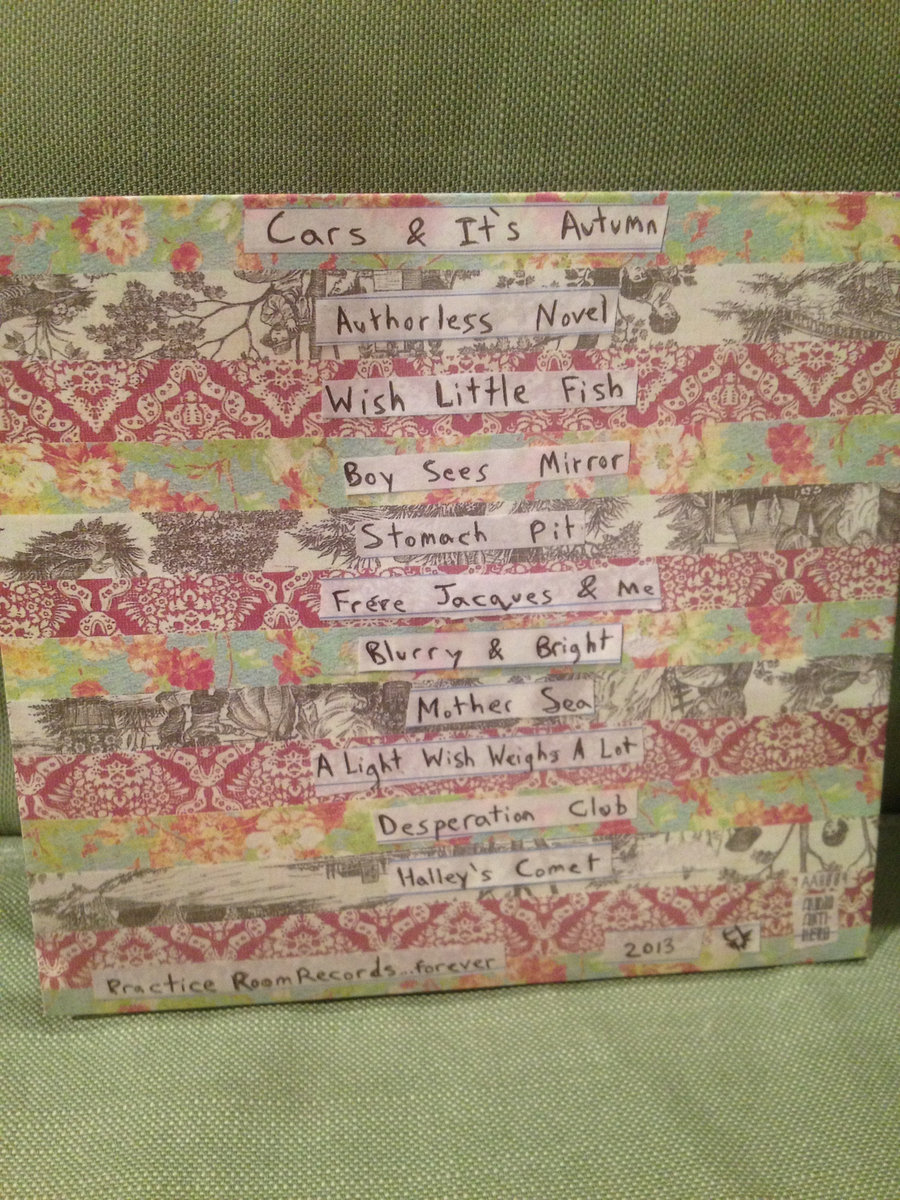 Cars & It's Autumn
Authorless Novel
Wish Little Fish
Boy Sees Mirror
Stomach Pit
Frére Jacques & Me
Blurry & Bright
Mother Sea
A Light Wish Weighs A Lot
Desperation Club
Halley's Comet
Practice Room Records...forever
2013
AUDIO
ANTI-
HERO